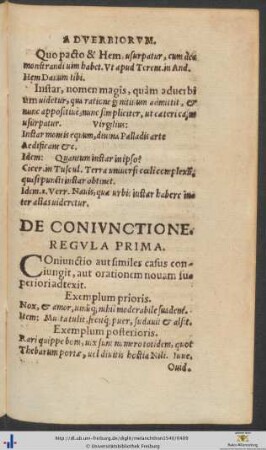 ADVERBIORVM.
Quo pacto & Hem usurpatur, cum de
monstrandi uim habet. Vt apud Terent. in And.
Hem Dauum tibi.
Instar, nomen magis, quàm aduerbi
um uidetur, qua ratione genitiuum admittit, &
nunc appositiuè, nunc simpliciter, ut cætera, in
usurpatur. Virgilius:
Instar montis equum, diuina Palladis arte
Aedificant &c.
Idem: Quantum instar in ipso?
Cicer. in Tuscul. Terra uniuersi cœli complexu,
quasi puncti instar obtinet.
Idem. 2. Verr. Nauis, quæ urbis instar habere in
ter illas uideretur.
DE CONIVNCTIONE.
REGVLA PRIMA.
COniunctio aut similes casus con
iungit, aut orationem nouam su
periori adtexit.
Exemplum prioris.
Nox, & amor, uinumq; nihil moderabile suadent.
Item: Multa tulit fecitq; puer, sudauit & alsit.
Exemplum posterioris.
Rari quippe boni, uix sunt numero totidem, quot
Thebarum portæ, uel diuitis hostia Nili. Iuue.
Ouid.
http://dl.ub.uni-freiburg.de/diglit/melanchthon1540/0409
© Universitätsbibliothek Freiburg
Baden-Württemberg